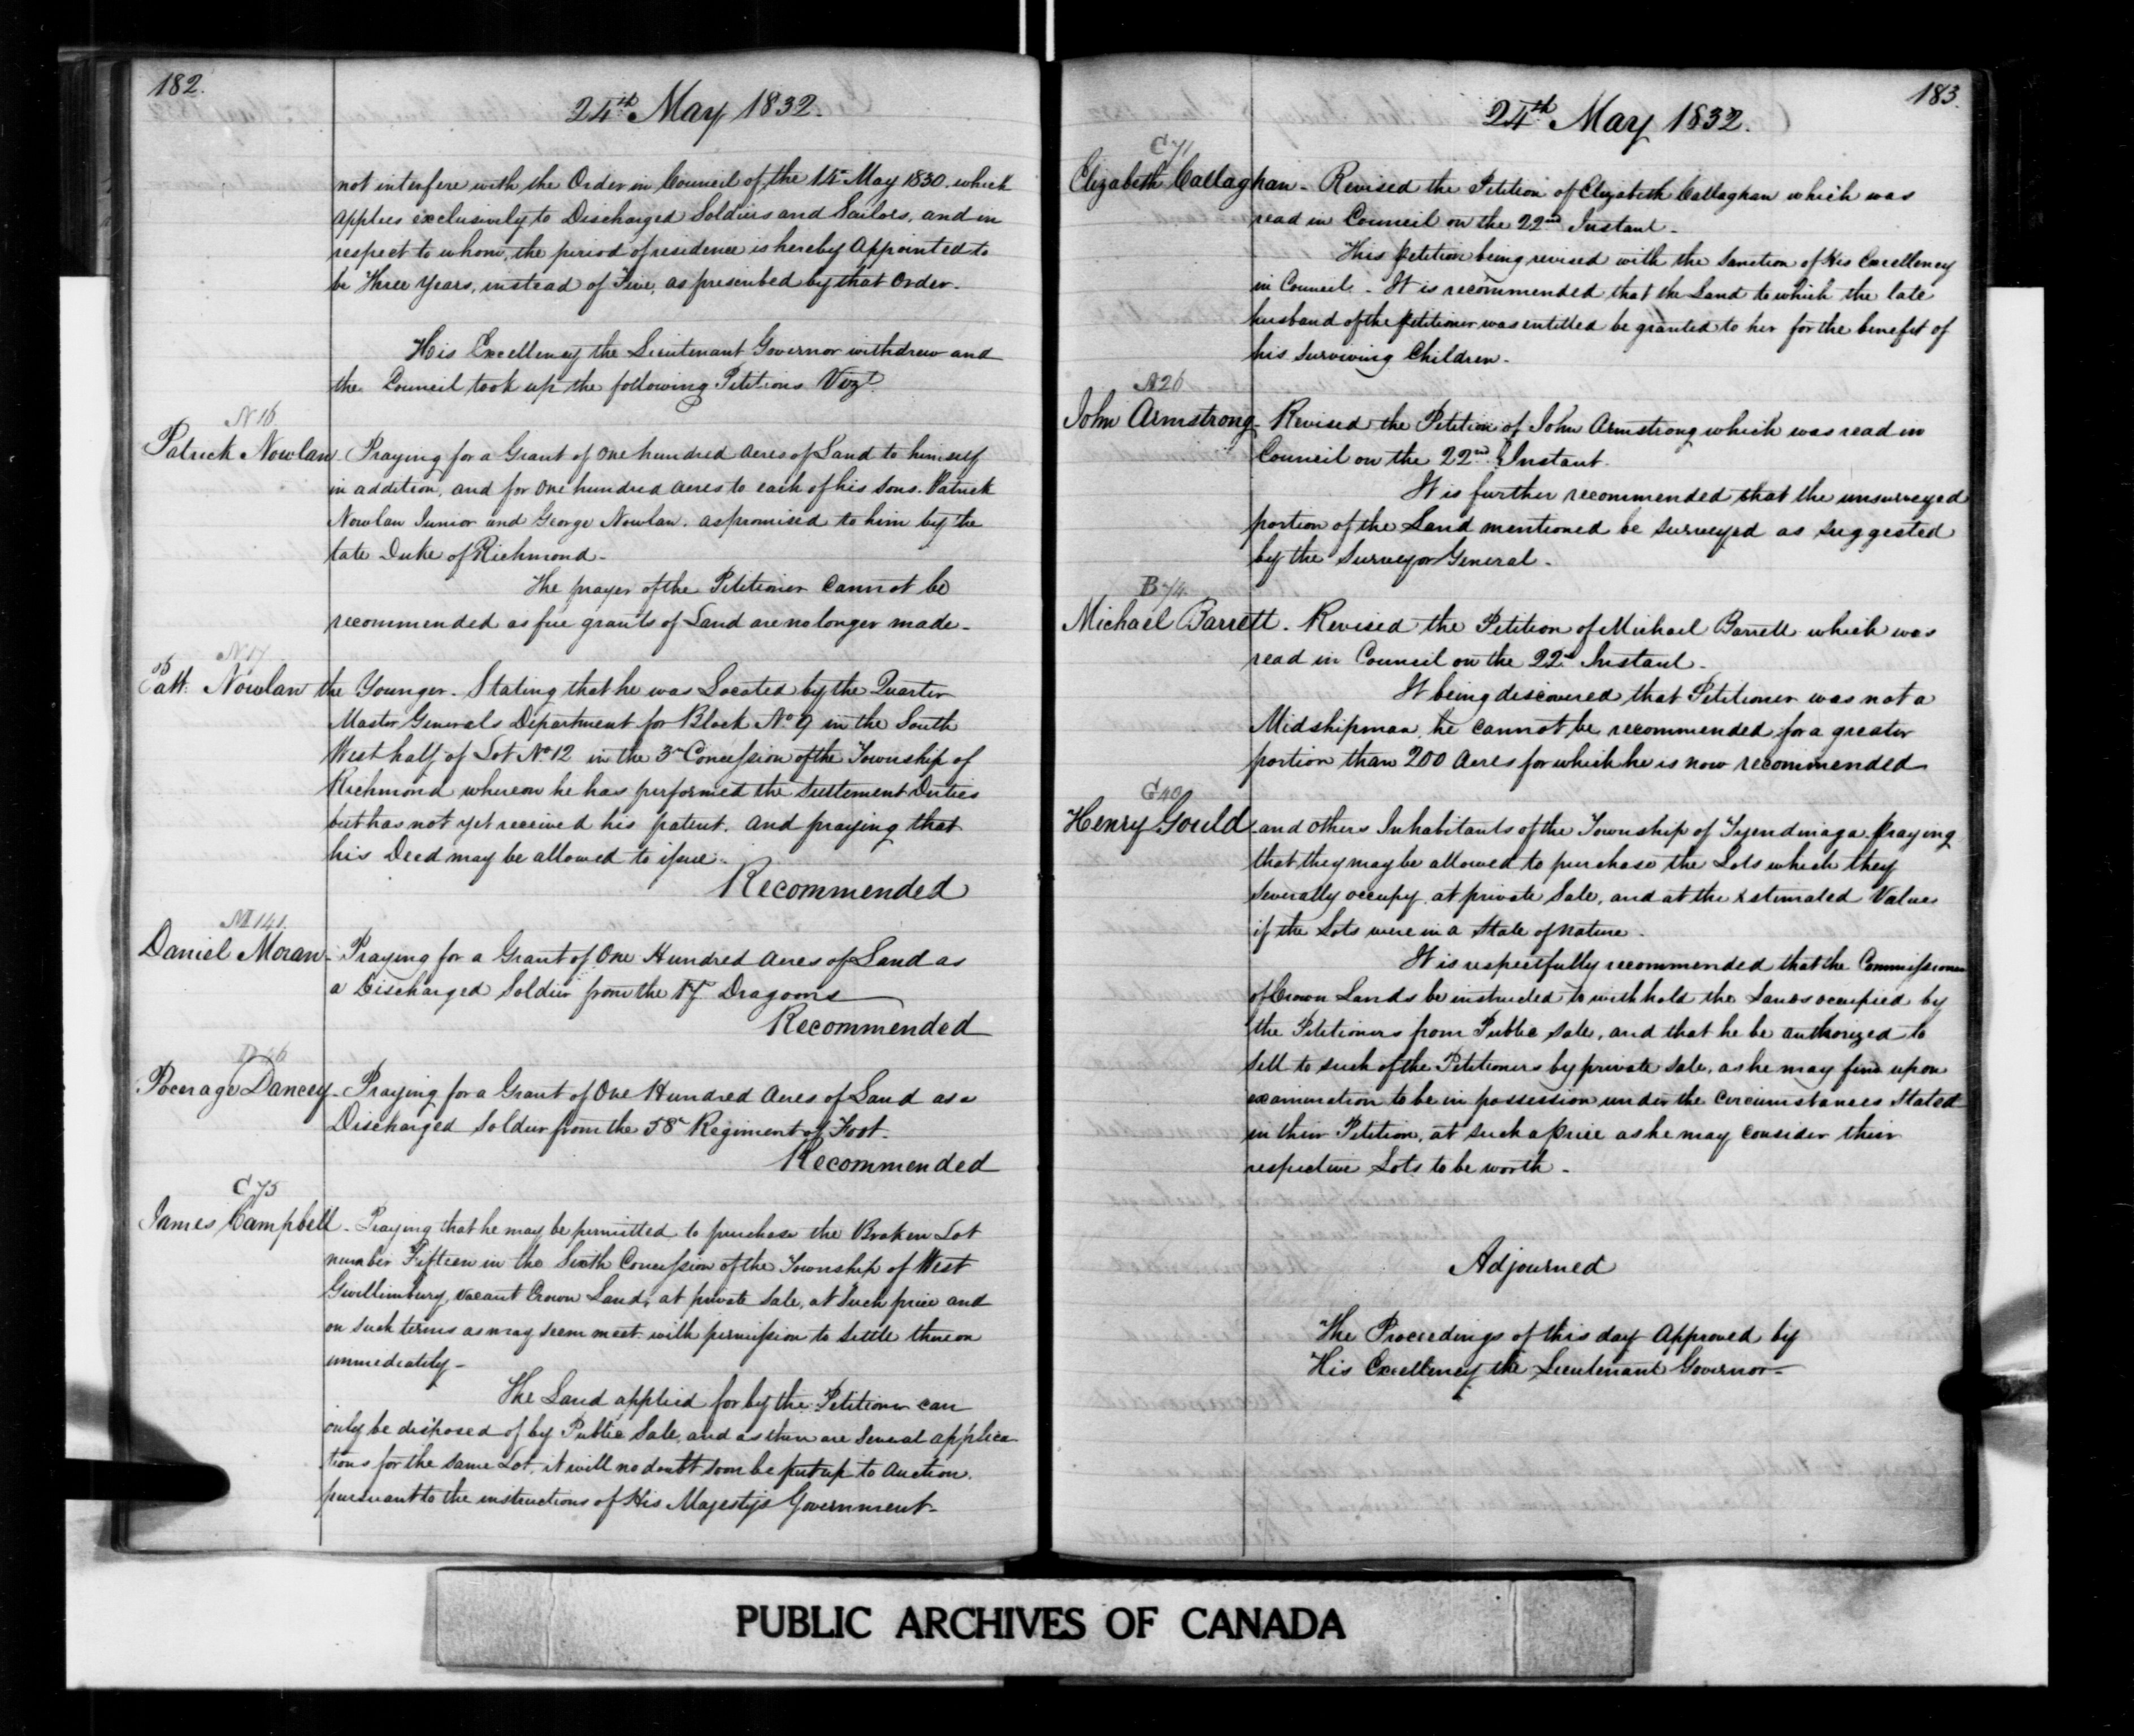 182.
24th May 1832.
not interfere with the Order in Council of the 15th May 1830. which
applies exclusively to Discharged Soldiers and Sailors, and in
respect to whom, the period of residence is hereby Appointed to
be Three Years, instead of Five, as prescribed by that Order.
His Excellency the Lieutenant Governor withdrew and
the Council took up the following Petitions Vizt
N 16
Patrick Nowlan. Praying for a Grant of One hundred acres of Land to himself
in addition, and for One hundred acres to each of his Sons. Patrick
Nowlan Junior and George Nowlan. as promised to him by the
late Duke of Richmond.
The prayer of the Petitioner Cannot be
recommended as free grants of Land are no longer made.
N 17
Patt. Nowlan the Younger. Stating that he was Located by the Quarter
Master Generals Department for Block No 9 in the South
West half of Lot No 12 in the 3rd Concession of the Township of
Richmond whereon he has performed the Settlement Duties
but has not yet received his patent. and praying that
his Deed may be allowed to issue.
Recommended
M 141.
Daniel Moran. Praying for a Grant of One Hundred Acres of Land as
a Discharged Soldier from the 17th Dragoons
Recommended
Dancey. Praying for a Grant of One Hundred Acres of Land as a
Discharged Soldier from the 58th Regiment of Foot.
Recommended
C 75
James Campbell. Praying that he may be permitted to purchase the Broken Lot
number Fifteen in the Sixth Concession of the Township of West
Gwillimbury, vacant Crown Land, at private Sale, at Such price and
on such terms as may seem meet with permission to Settle thereon
immediately.
The Land applied for by the Petitioner can
only be disposed of by Public Sale, and as there are Several applica
tions for the same Lot, it will no doubt soon be put up to Auction.
pursuant to the instructions of His Majesty's Government.
183.
24th May 1832.
C 71
Elizabeth Callaghan. Revised the Petition of Elizabeth Callaghan which was
read in Council on the 22nd Instant.
This Petition being revised with the Sanction of His Excellency
in Council. It is recommended that the Land to which the late
husband of the Petitioner was entitled be granted to her for the benefit of
his surviving Children.
A 26
John Armstrong. Revised the Petition of John Armstrong which was read in
Council on the 22nd Instant.
It is further recommended that the unsurveyed
portion of the Land mentioned be surveyed as suggested
by the Surveyor General.
B 74
Michael Barrett. Revised the Petition of Michael Barrett which was
read in Council on the 22nd Instant.
It being discovered that Petitioner was not a
Midshipman, he cannot be recommended for a greater
portion than 200 Acres for which he is now recommended
G 40
Henry Gould and others Inhabitants of the Township of Tyendinaga. Praying
that they may be allowed to purchase the Lots which they
Severally occupy at private Sale, and at the Estimated Value
if the Lots were in a State of nature.
It is respectfully recommended that the Commissioner
of Crown Lands be instructed to withhold the Lands occupied by
the Petitioners from Public Sale, and that he be authorized to
Sell to such of the Petitioners by private Sale, as he may find upon
examination to be in possession under the Circumstances Stated
in their Petition, at such a price as he may consider their
respective Lots to be worth.
Adjourned
The Proceedings of this day Approved by
His Excellency the Lieutenant Governor
PUBLIC ARCHIVES OF CANADA